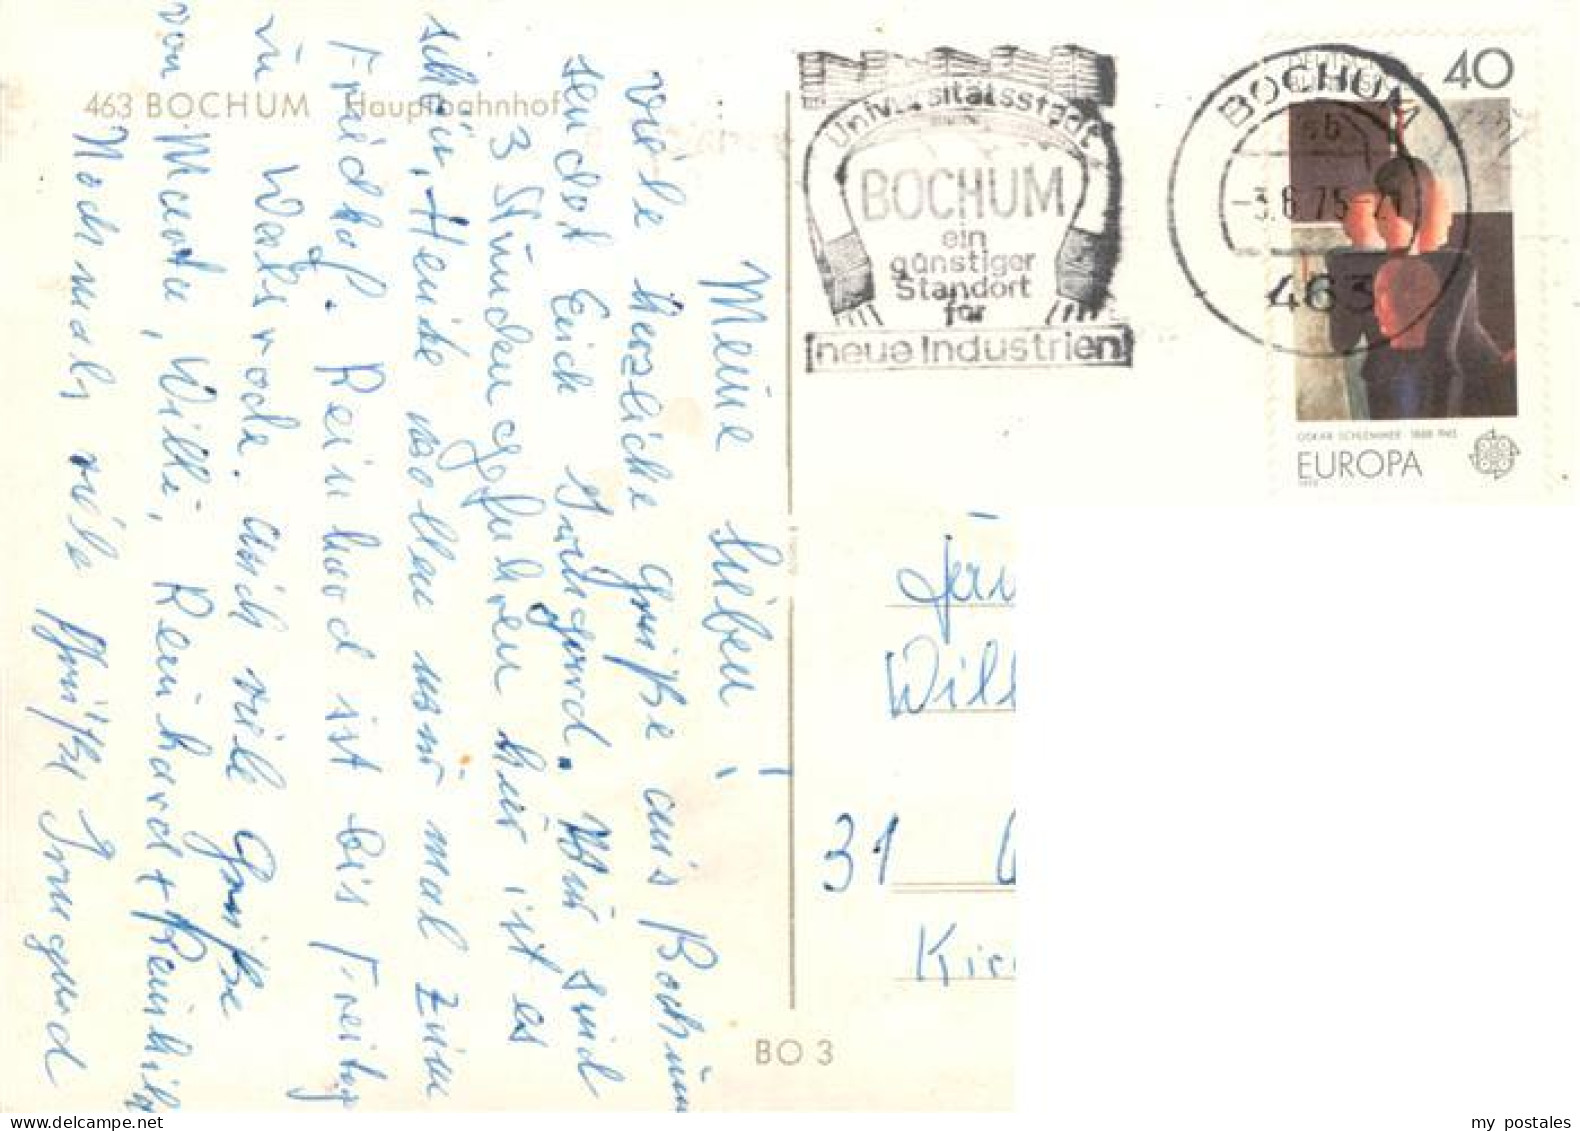 463 BOCHUM Hauptbahnhof
Meine Lieben!
Viele herzliche Grüße aus Bochum
sendet Euch Irmgard. Wir sind
3 Stunden gefahren hier ist es
schön, Heute wollen wir mal zum
Friedhof. Reinhard ist bis Freitag
in Walsrode. Auch viele Grüße
von Willi, Reinhard + Reinhild
Nochmals viele Grüße Irmgard
Universitätsstadt
BOCHUM
ein
günstiger
Standort
für
neue Industrien
BOCHUM
-3.8.75-21
463
40
OSKAR SCHLEMMER 1888-1943
EUROPA
31
BO 3
my postales